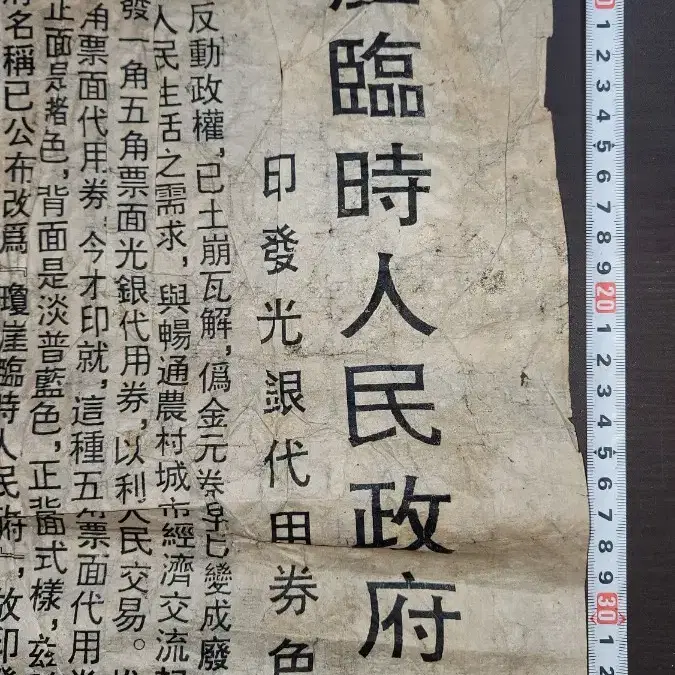 崖臨時人民政府
印發光銀代用券色
反動政權,已土崩瓦解,僞金元券早已變成廢
人民生活之需求,與暢通農村城市經濟交流起
發一角五角票面光銀代用券,以利人民交易。
角票面代用券,今才印就,這種五角票面代用券
正面是赭色,背面是淡普藍色,正背面式樣,茲
名稱已公布改爲『瓊崖臨時人民政府』,故印發
1 2 3 4 5 6 7 8 9 20 1 2 3 4 5 6 7 8 9 30 1 2